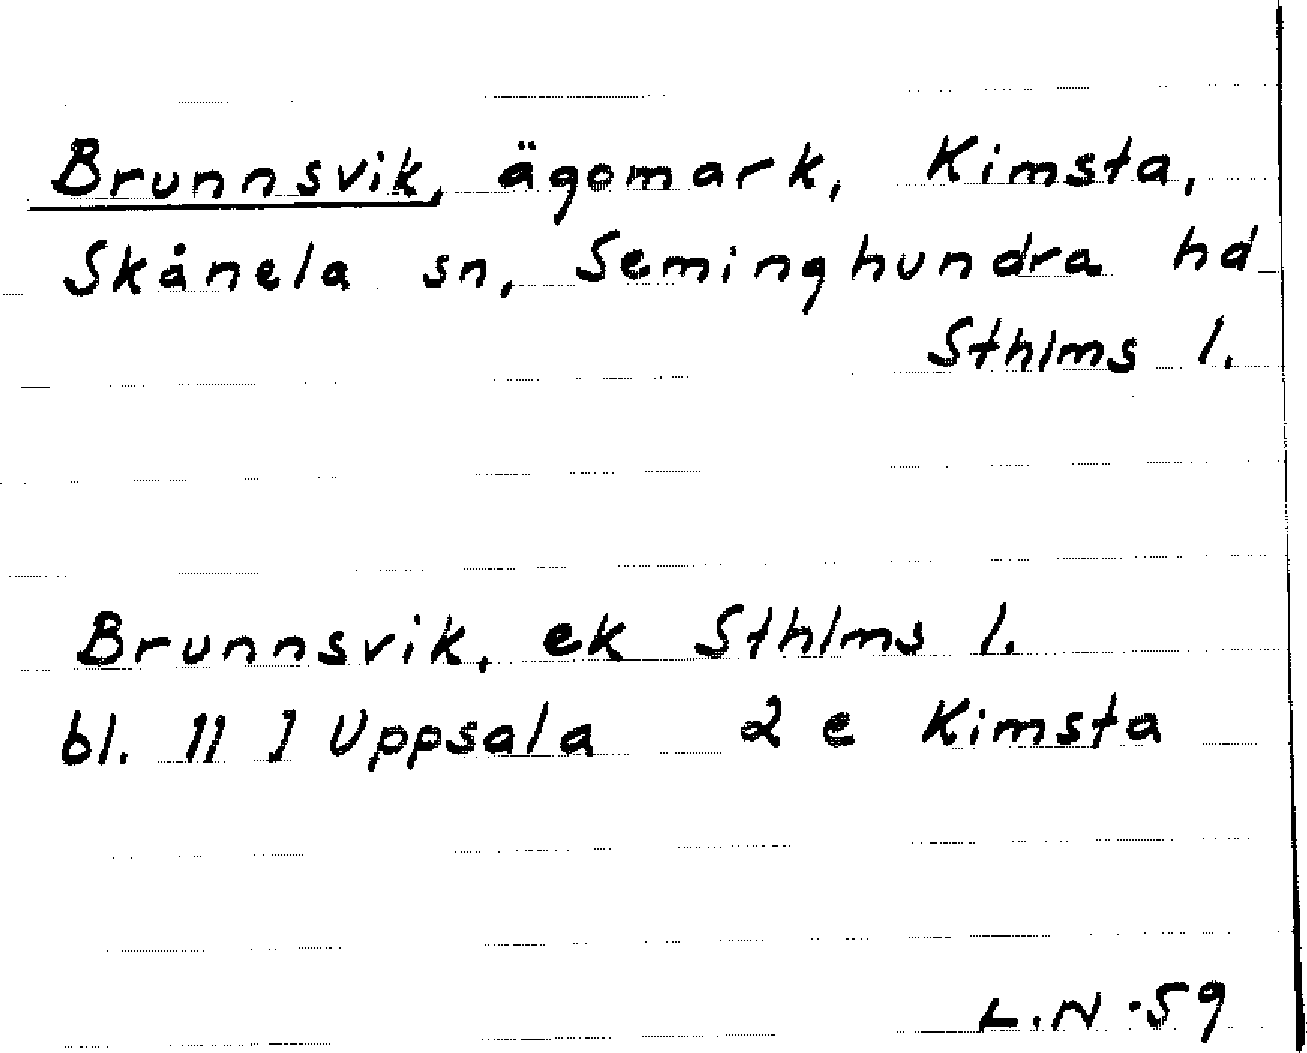 Brunnsvik, ägomark, Kimsta,
Skånela sn, Seminghundra hd
Sthlms l.
Brunnsvik, ek Sthlms l.
bl. 11 J Uppsala 2 e Kimsta
L.N. 59